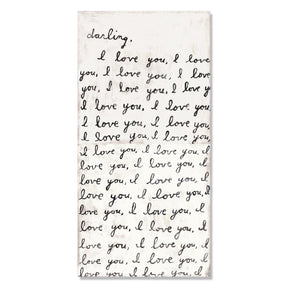 darling,
I love you, I love
you, I love you, I love
you, I love you, I love
I love you, I love you
I love you, I love you,
I love you, I love you,
I love you, I love you, I
love you, I love you, I
love you, I love you, I
love you, I love you, I
love you, I love you, I
love you, I love you, I
love you, I love you, I
love you, I love you, I
you, I love you, I love